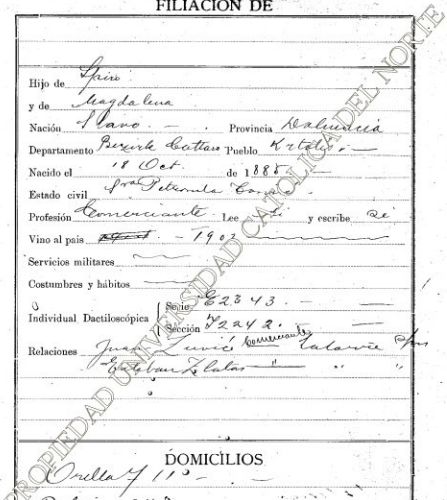 FILIACIÓN DE
Hijo de Spiro
y de Magdalena
Nación Slavo Provincia Dalmacia
Departamento Bezirk Cattaro Pueblo Krtole
Nacido el 18 Oct de 1885
Estado civil Petronila
Profesión Comerciante Lee si y escribe si
Vino al pais 1902
Servicios militares
Costumbres y hábitos
Individual Dactiloscópica
Serie E2343.
Sección I2242.
Relaciones Juan comerciante
Esteban Zlatar " " "
DOMICILIOS
Orella 711
PROPIEDAD UNIVERSIDAD CATOLICA DEL NORTE